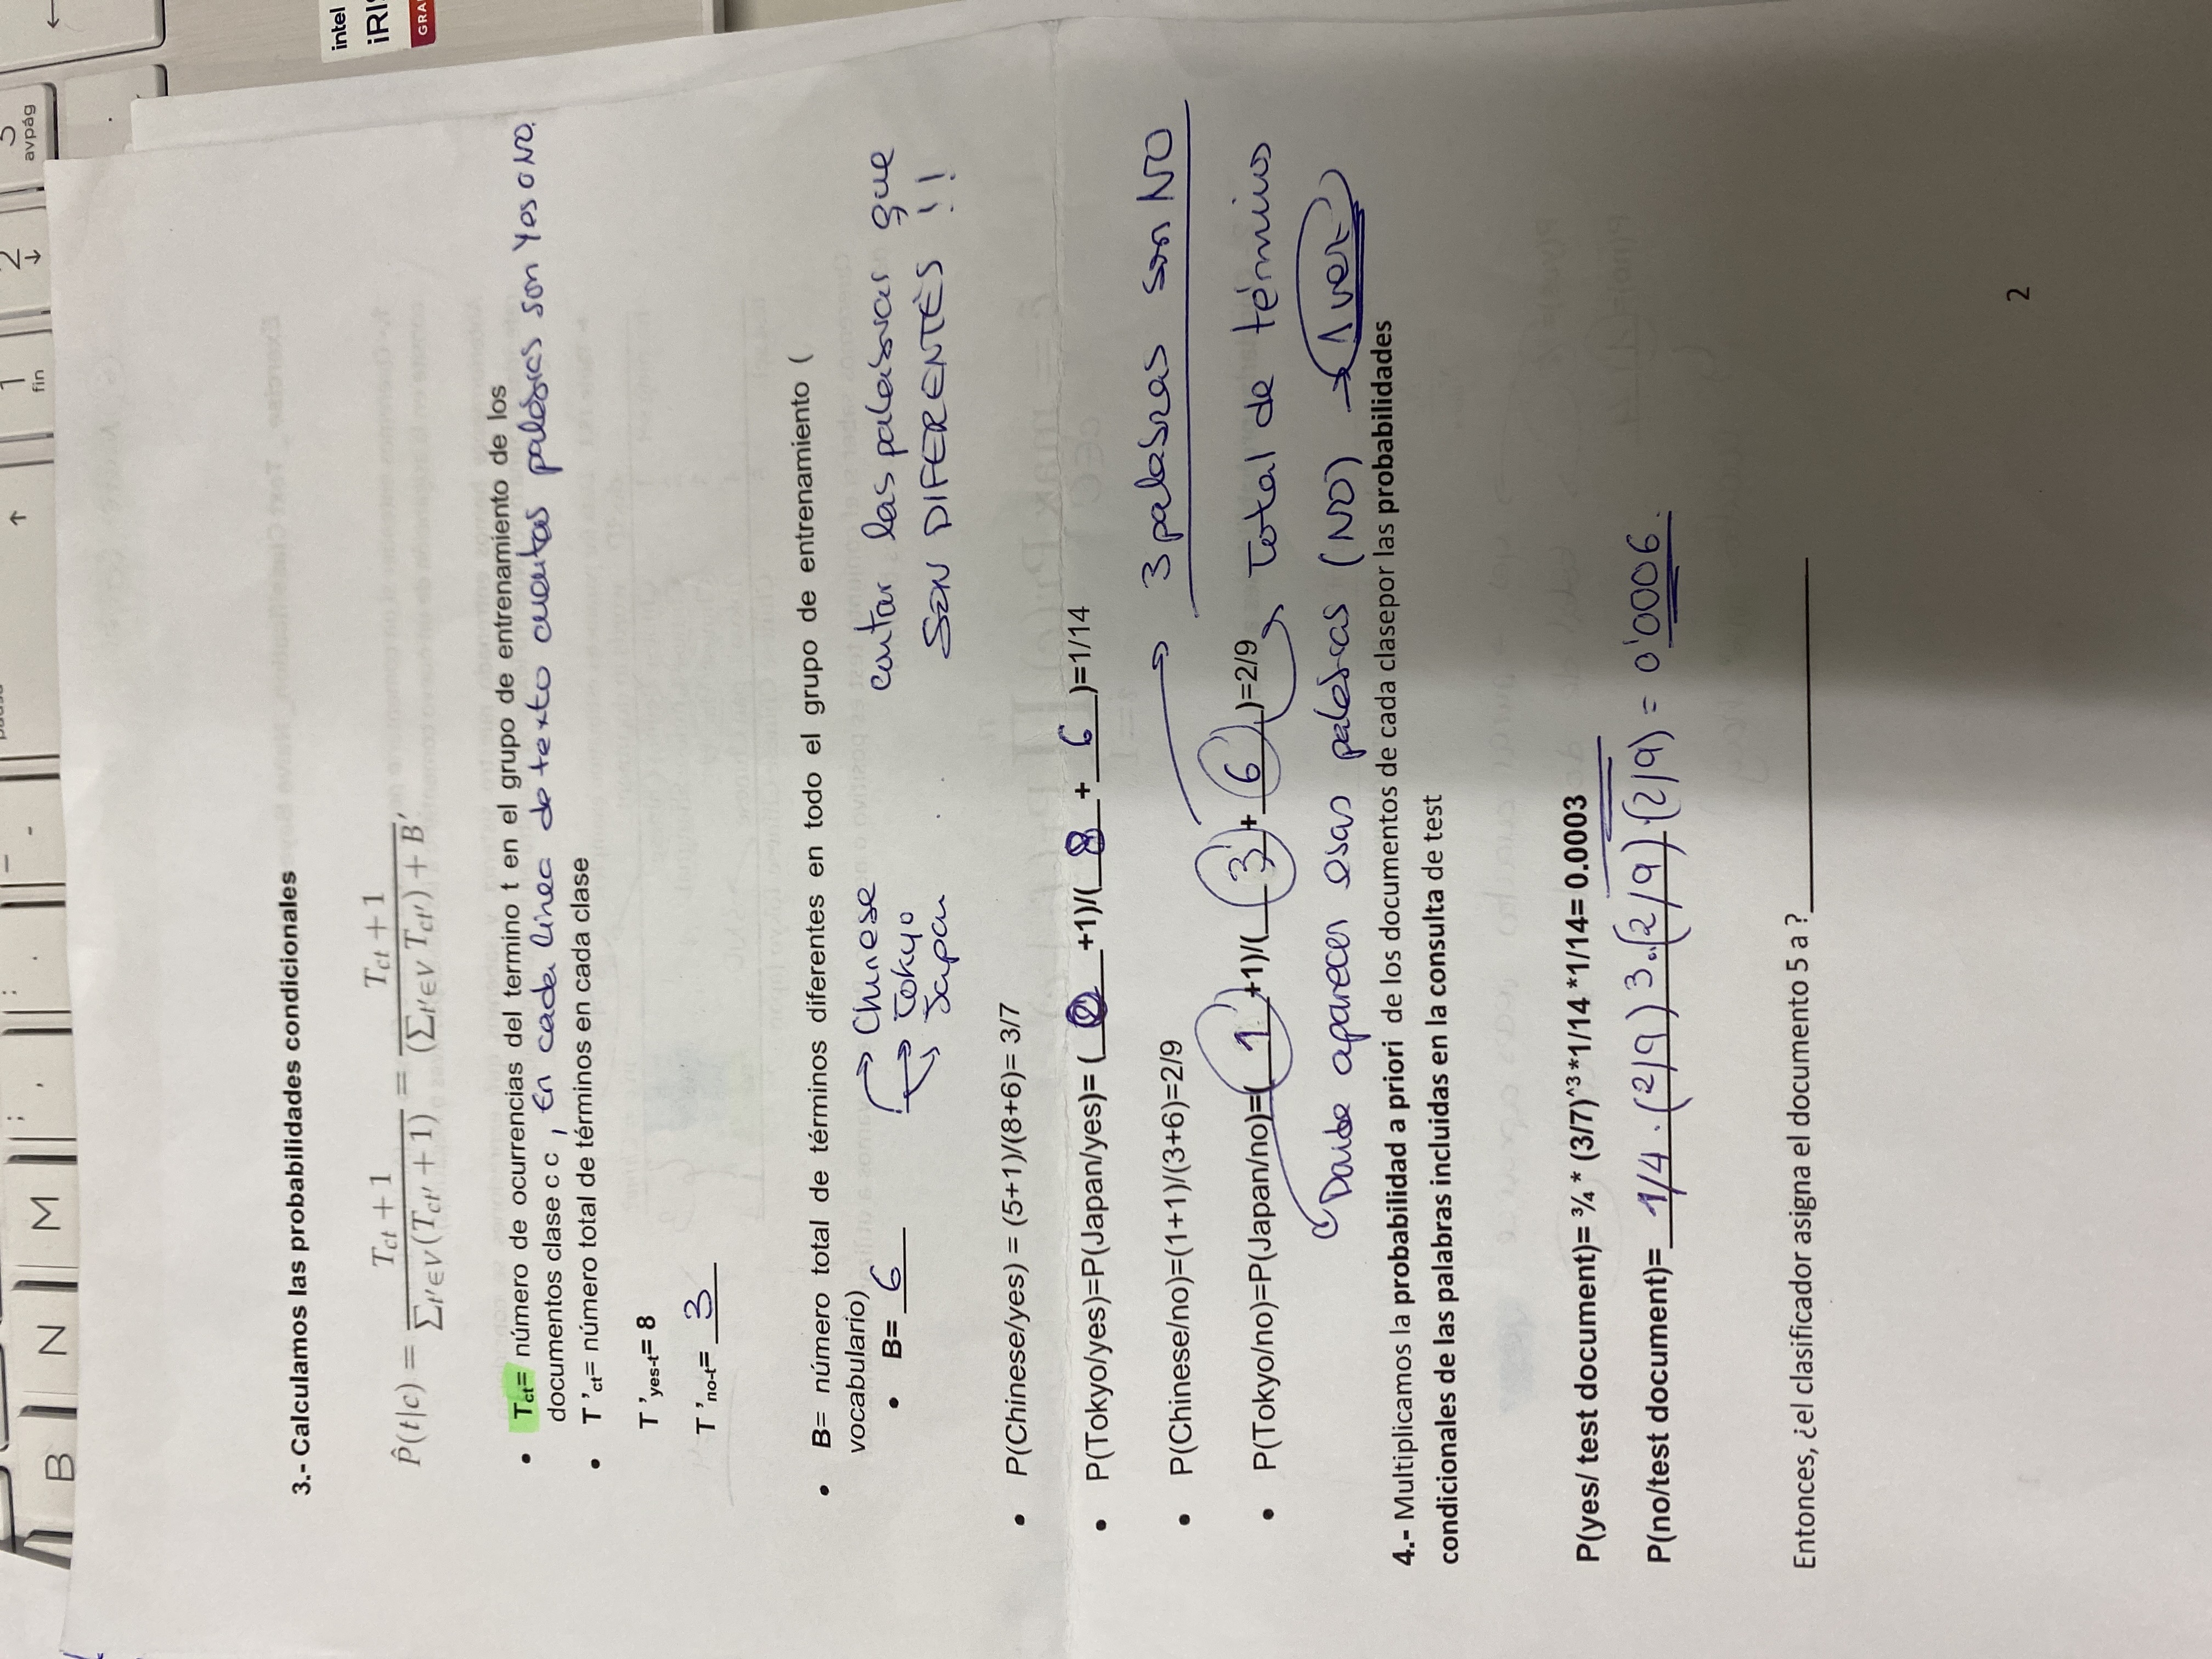 B N M ; , : . - ↑ 1 fin 2 ↓ 3 avpág ←
intel
iRIS
GRA
3.- Calculamos las probabilidades condicionales
P̂(t|c) = (T_ct + 1) / (∑_{t'∈V}(T_ct' + 1)) = (T_ct + 1) / ((∑_{t'∈V} T_ct') + B'),
• T_ct= número de ocurrencias del termino t en el grupo de entrenamiento de los
documentos clase c c , En cada línea de texto cuentas palabras son Yes o NO.
• T '_ct= número total de términos en cada clase
T '_yes-t= 8
T '_no-t= 3
• B= número total de términos diferentes en todo el grupo de entrenamiento (
vocabulario)
• B= 6
→ Chinese
→ Tokyo
→ Japan
contar las palabras que
SON DIFERENTES !!
• P(Chinese/yes) = (5+1)/(8+6)= 3/7
• P(Tokyo/yes)=P(Japan/yes)= ( 0 +1)/( 8 + 6 )=1/14
• P(Chinese/no)=(1+1)/(3+6)=2/9
→ 3 palabras son NO
• P(Tokyo/no)=P(Japan/no)=( 1 +1)/( 3 + 6 )=2/9 → Total de términos
Donde aparecen esas palabras (NO) → 1 vez
4.- Multiplicamos la probabilidad a priori de los documentos de cada clasepor las probabilidades
condicionales de las palabras incluidas en la consulta de test
P(yes/ test document)= ¾ * (3/7)^3 *1/14 *1/14= 0.0003
P(no/test document)= 1/4 · (2/9) 3 · (2/9) · (2/9) = 0'0006.
Entonces, ¿el clasificador asigna el documento 5 a ?
2